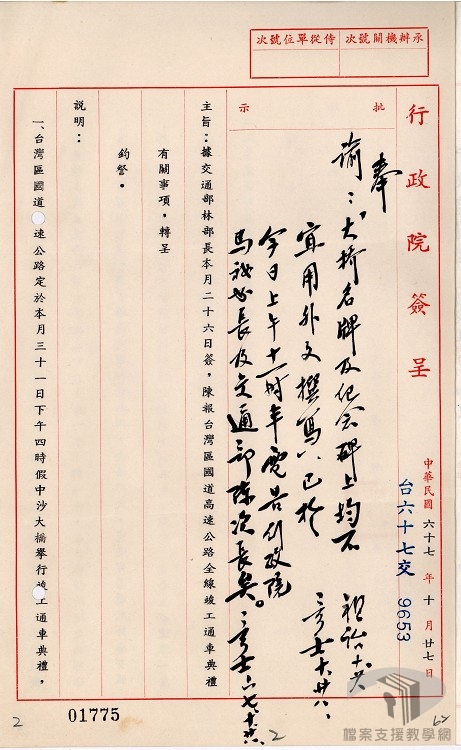 承辦機關號次
侍從單位號次
行政院簽呈
中華民國六十七年十月廿七日
台六十七交 9653
批示
奉
諭：「大橋名牌及紀念碑上均不
宜用外文撰寫」已於
今日上午十一時半電告行政院
馬秘書長及交通部陳次長矣。
主旨：據交通部林部長本月二十六日簽，陳報台灣區國道高速公路全線竣工通車典禮
有關事項，轉呈
鈞詧。
說明：
一、台灣區國道 速公路定於本月三十一日下午四時假中沙大橋舉行竣工通車典禮，
2
01775
2
檔案支援教學網